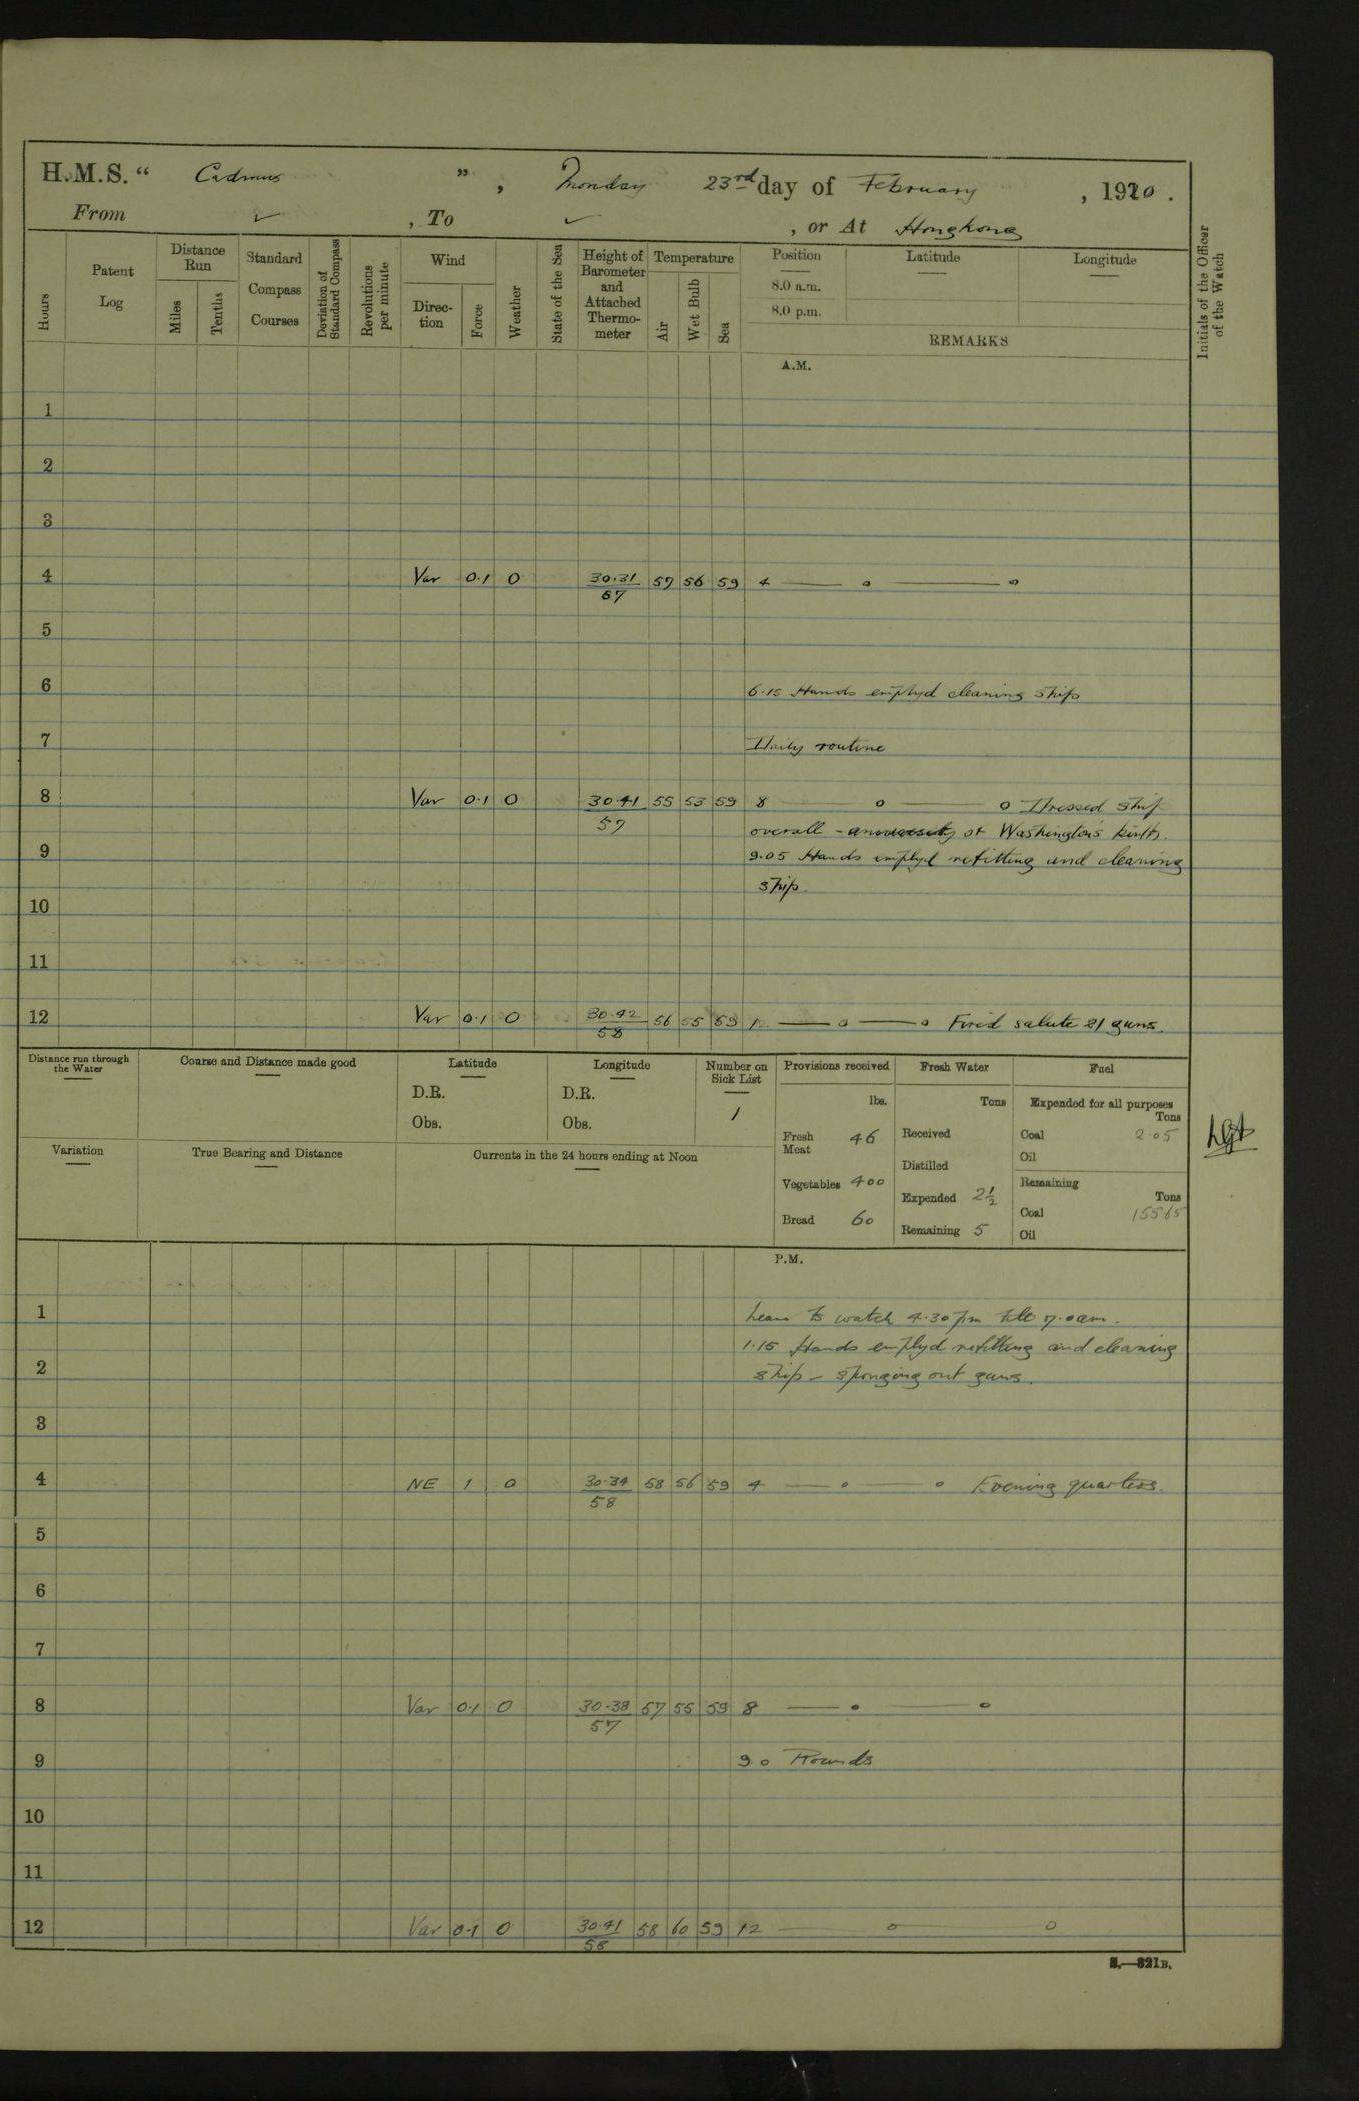 H.M.S. “ Cadmus ” , Monday 23rd day of February , 1920 .
From ✓ , To ✓ , or At Hongkong
Hours
Patent Log
Distance Run
Miles
Tenths
Standard Compass Courses
Deviation of Standard Compass
Revolutions per minute
Wind
Direction
Force
Weather
State of the Sea
Height of Barometer and Attached Thermometer
Temperature
Air
Wet Bulb
Sea
Position
8.0 a.m.
8.0 p.m.
Latitude
Longitude
REMARKS
Initials of the Officer of the Watch
A.M.
1
2
3
4 Var 0.1 0 30.31 57 56 59 4 — o — o
57
5
6 6.15 Hands employd cleaning ship
7 Daily routine
8 Var 0.1 0 30.41 55 53 59 8 — o — o Dressed ship
57 overall - of Washington's birth.
9 9.05 Hands employd refitting and cleaning
ship.
10
11
12 Var 0.1 0 30.42 56 55 59 12 — o — o Fired salute 21 guns.
58
Distance run through the Water
Course and Distance made good
Latitude
D.R.
Obs.
Longitude
D.R.
Obs.
Number on Sick List
1
Provisions received
lbs.
Fresh Meat 46
Vegetables 400
Bread 60
Fresh Water
Tons
Received
Distilled
Expended 2½
Remaining 5
Fuel
Expended for all purposes
Tons
Coal 2.05
Oil
Remaining
Tons
Coal 155.65
Oil
Variation
True Bearing and Distance
Currents in the 24 hours ending at Noon
P.M.
1 Leave to watch 4.30pm till 7.0am.
1.15 Hands employd refitting and cleaning
2 ship - sponging out guns.
3
4 NE 1 0 30.34 58 56 59 4 — o — o Evening quarters.
58
5
6
7
8 Var 0.1 0 30.38 57 55 59 8 — o — o
57
9 9.0 Rounds
10
11
12 Var 0.1 0 30.41 58 60 59 12 — o — o
58
S.—321B.